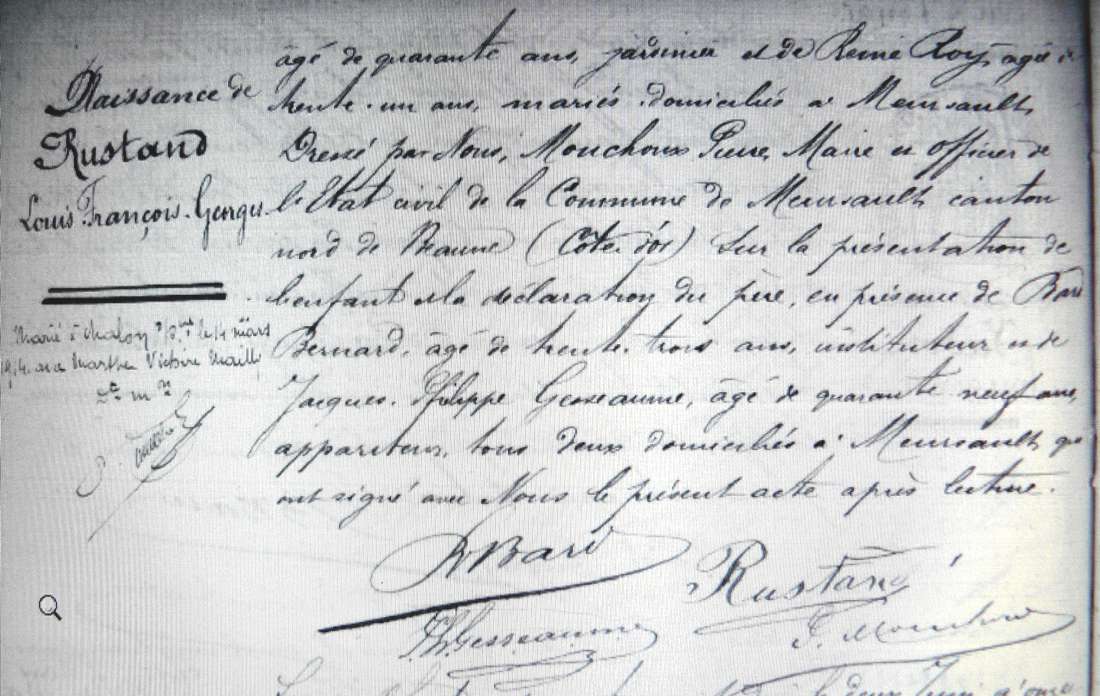 Naissance de
Rustand
Louis François-Georges
Marié à Chalon s/ le 4 mars
Marthe Victoire
âgé de quarante ans, jardinier et de Reine Roy, âgée de
trente-un ans, mariés domiciliés à Meursault.
Dressé par Nous, Mouchoux Pierre, Maire et officier de
l'Etat civil de la Commune de Meursault, canton
nord de Beaune (Côte d'or) Sur la présentation de
l'enfant et la déclaration du père, en présence de Bard
Bernard, âgé de trente-trois ans, instituteur et de
Jacques-Philippe Gesseaume, âgé de quarante neuf ans,
appariteur, tous deux domiciliés à Meursault, qui
ont signé avec Nous le présent acte après lecture.
B Bard
Rustand
Ph Gesseaume
P. Mouchoux